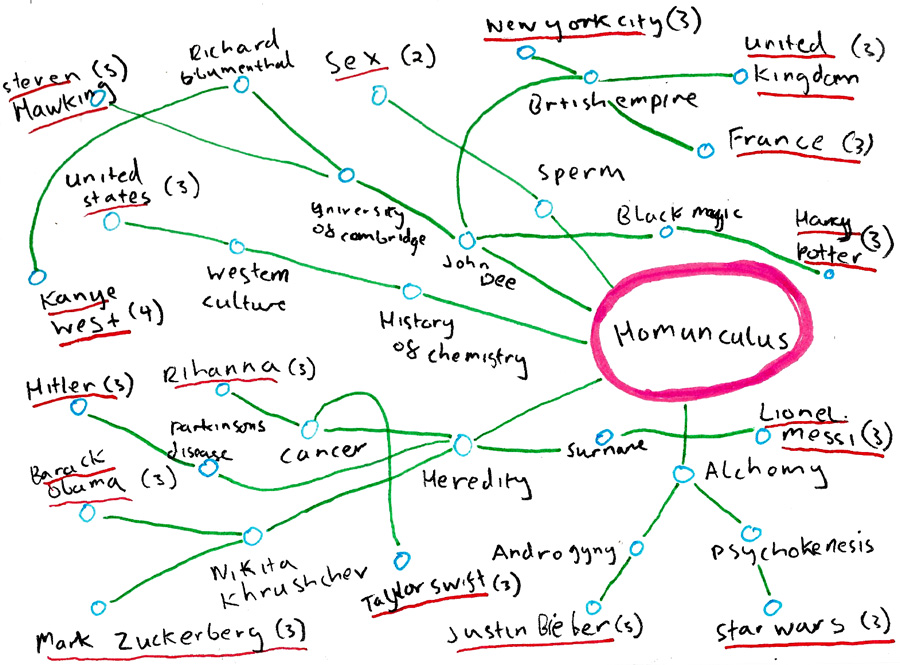 New york city (3)
Richard
Blumenthal
Sex (2)
united (3)
kingdom
steven (3)
Hawking
British empire
France (3)
united
states (3)
sperm
university
of cambridge
Black magic
Harry (3)
potter
John
Dee
western
culture
Kanye
west (4)
History
of chemistry
Homunculus
Hitler (3)
Rihanna (3)
parkinsons
disease
cancer
Lionel
messi (3)
surname
Barack
obama (3)
Heredity
Alchomy
Nikita
Khrushchev
Androgyny
psychokenesis
Taylor swift (3)
Mark Zuckerberg (3)
Justin Bieber (3)
star wars (3)